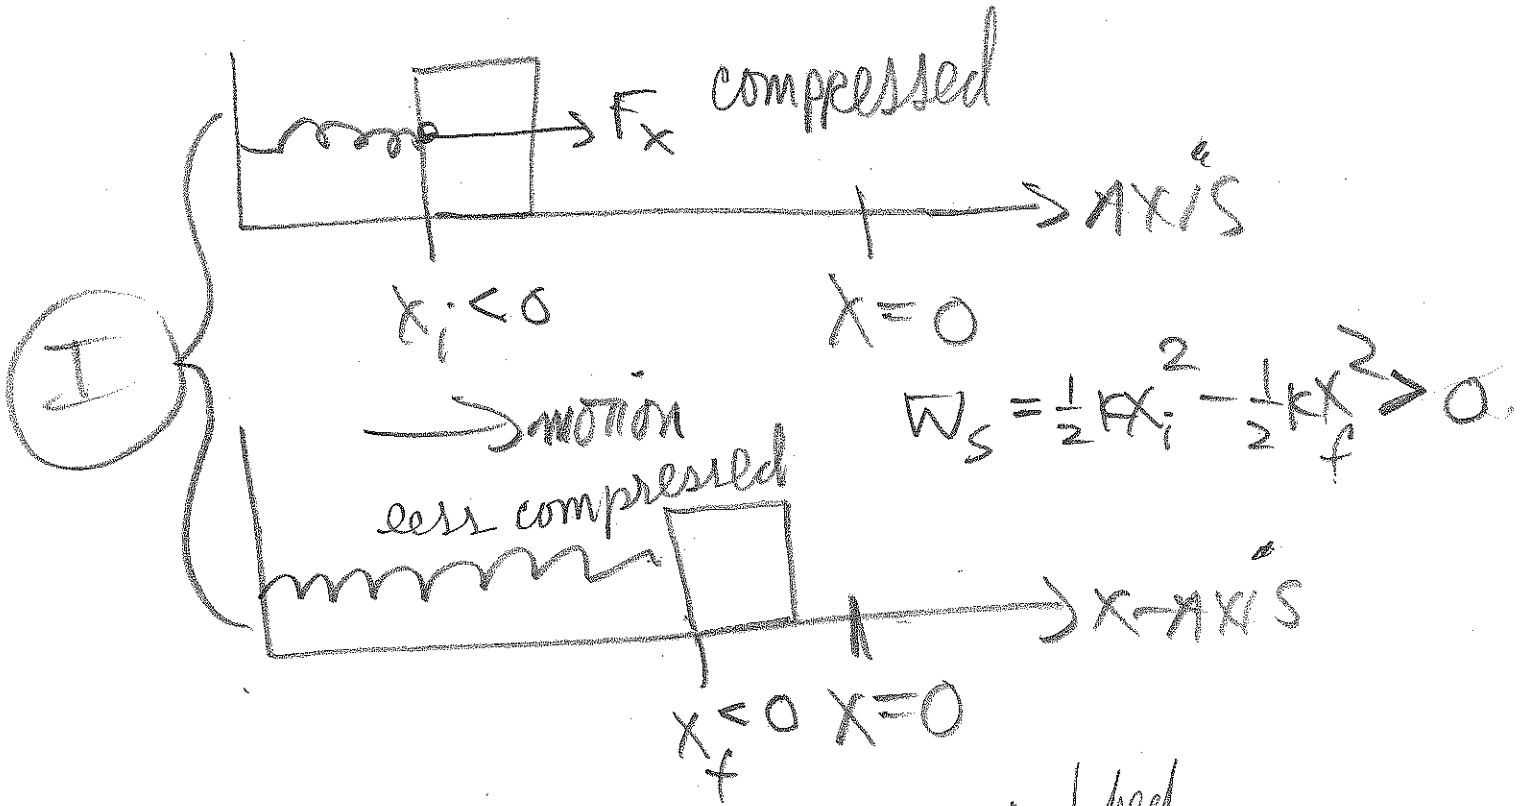 F_x compressed
AXIS
x_i < 0
x = 0
I
→ motion
W_s = 1/2 kx_i^2 - 1/2 kx_f^2 > 0
less compressed
x-AXIS
x_f < 0 x = 0